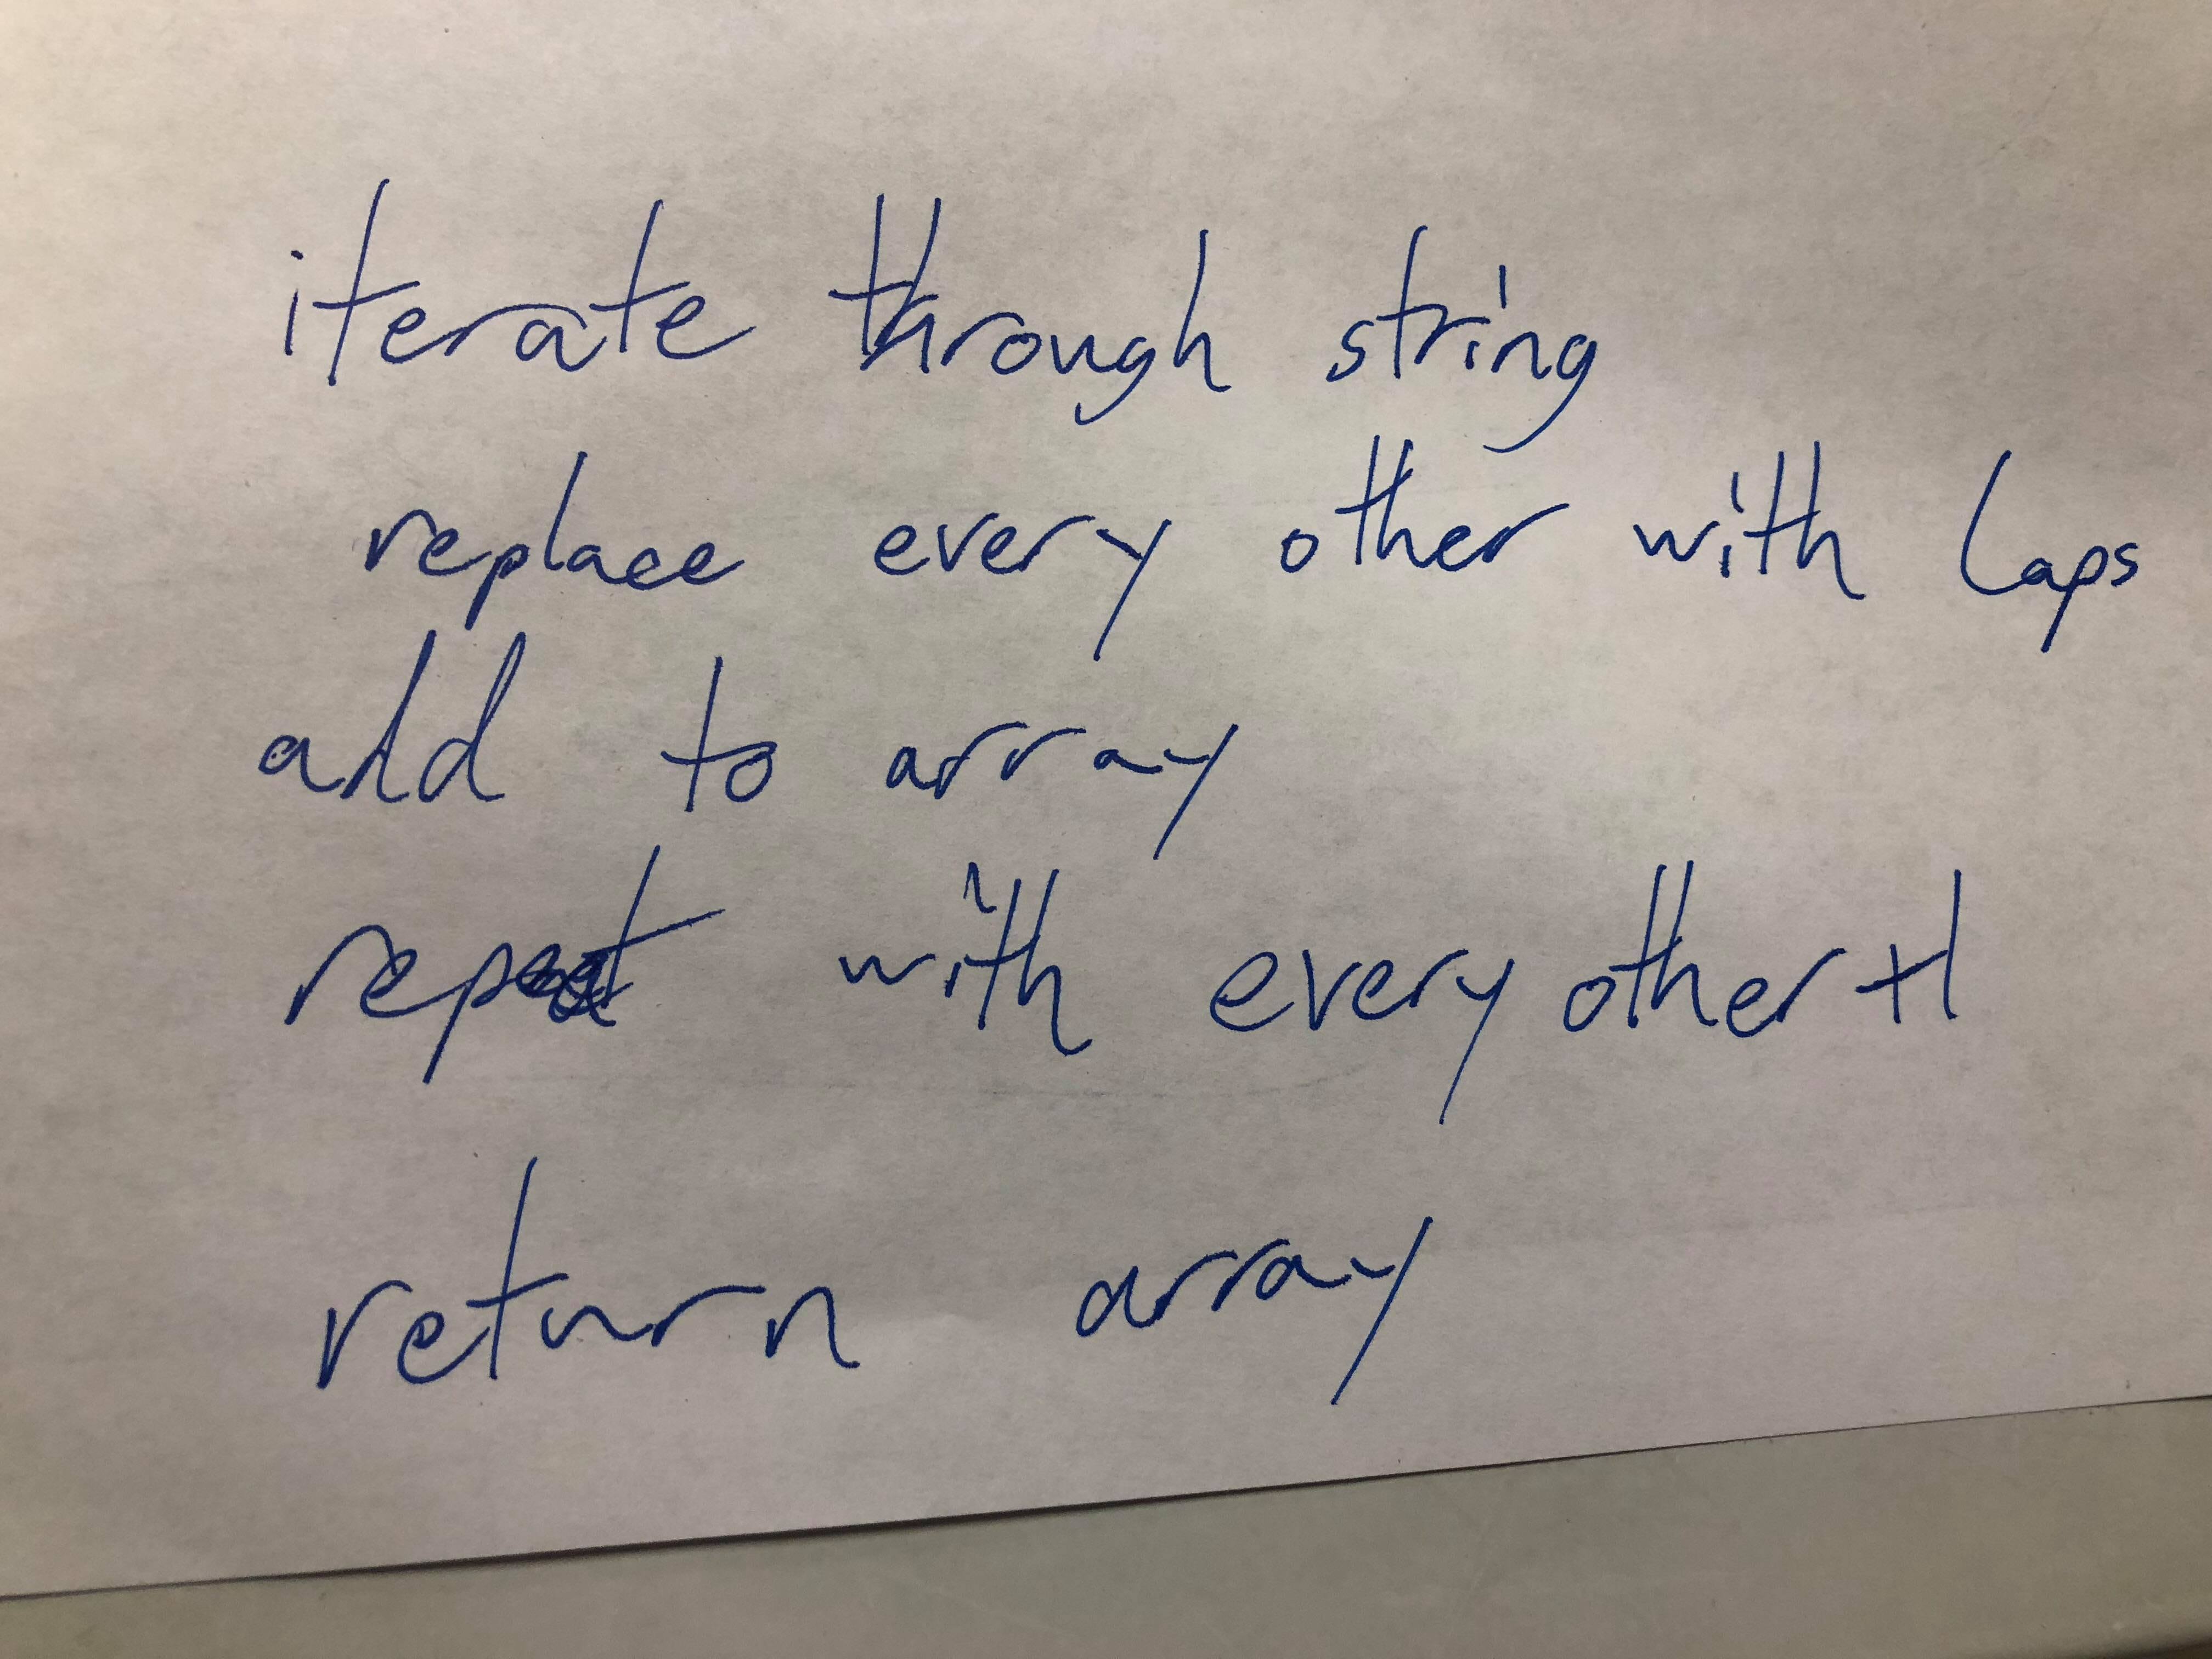 iterate through string
replace every other with Caps
add to array
repeat with every other +1
return array